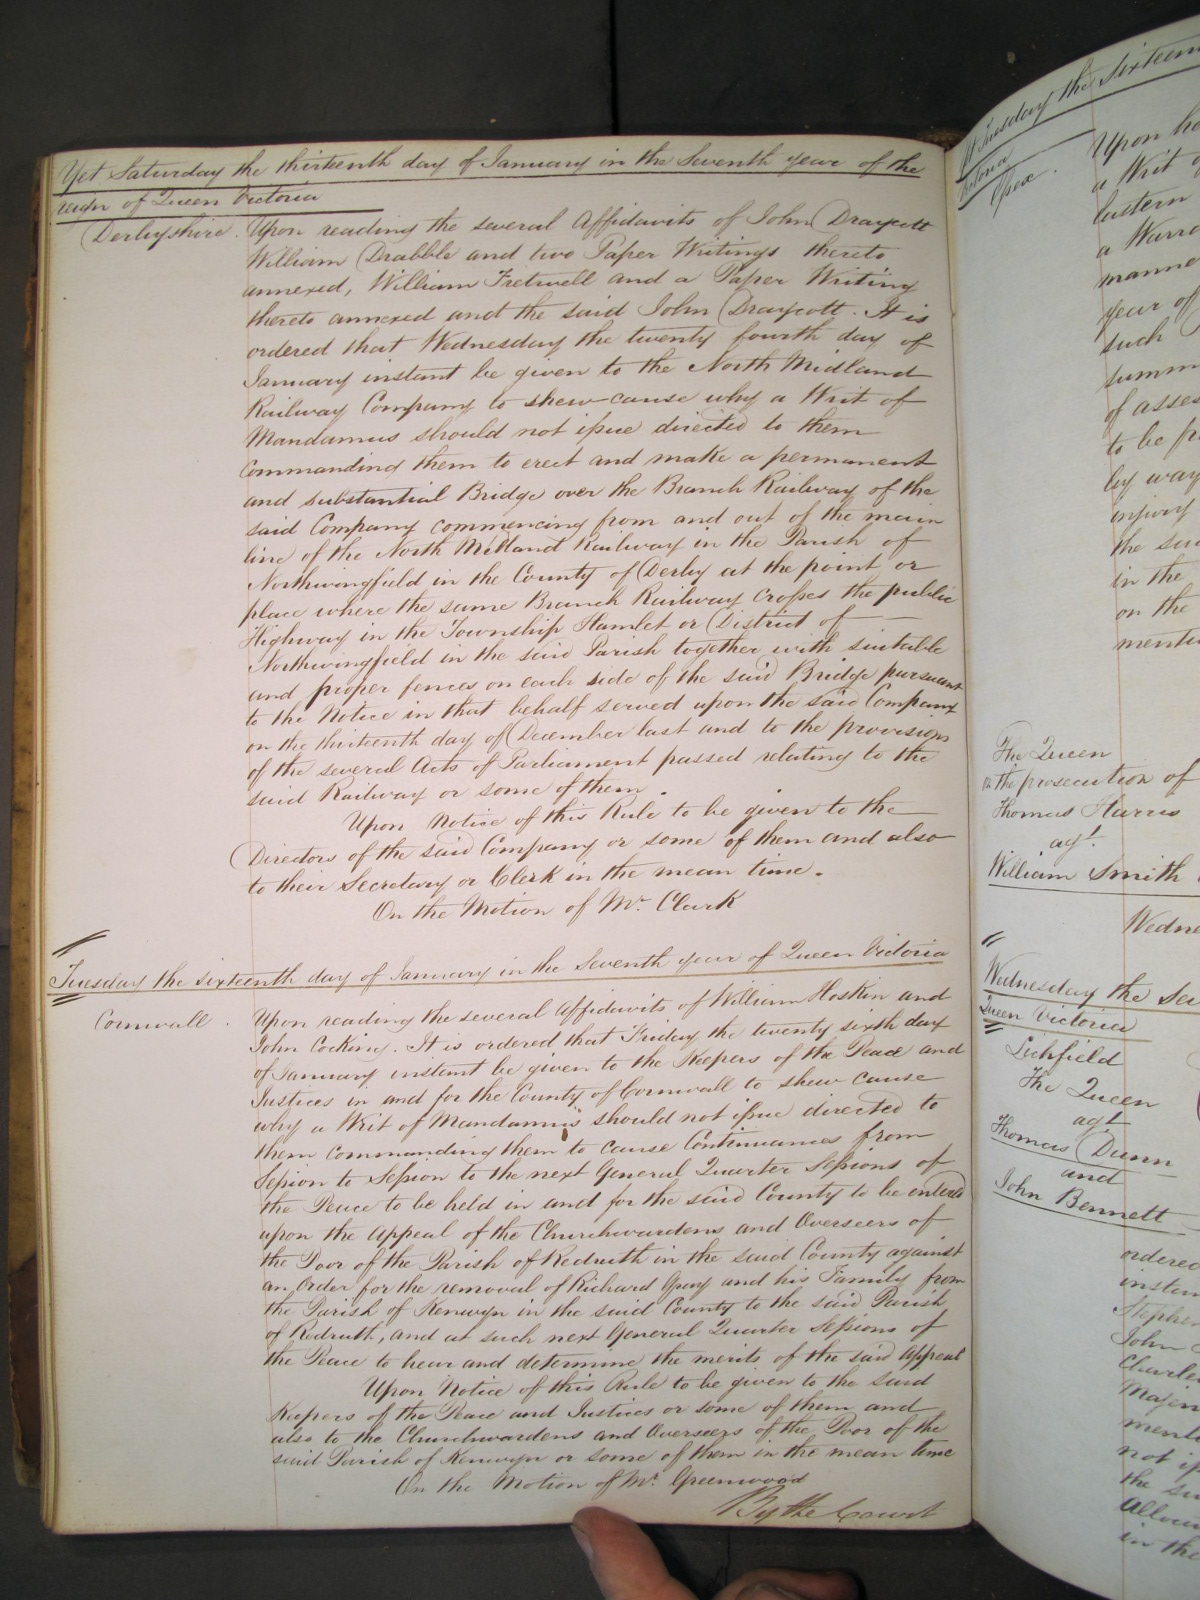 Yet Saturday the thirteenth day of January in the Seventh year of the
reign of Queen Victoria
Derbyshire. Upon reading the several Affidavits of John Draycott
William Drabble and two Paper Writings thereto
annexed, William Fretwell and a Paper Writing
thereto annexed and the said John Draycott. It is
ordered that Wednesday the twenty fourth day of
January instant be given to the North Midland
Railway Company to shew cause why a Writ of
Mandamus should not issue directed to them
commanding them to erect and make a permanent
and substantial Bridge over the Branch Railway of the
said Company commencing from and out of the main
line of the North Midland Railway in the Parish of
Northwingfield in the County of Derby at the point or
place where the same Branch Railway crosses the public
Highway in the Township Hamlet or District of
Northwingfield in the said Parish together with suitable
and proper fences on each side of the said Bridge pursuant
to the Notice in that behalf served upon the said Company
on the thirteenth day of December last and to the provisions
of the several Acts of Parliament passed relating to the
said Railway or some of them.
Upon Notice of this Rule to be given to the
Directors of the said Company or some of them and also
to their Secretary or Clerk in the mean time.
On the Motion of Mr. Clark
Tuesday the sixteenth day of January in the Seventh year of Queen Victoria
Cornwall. Upon reading the several Affidavits of William Hoskin and
John Cocking. It is ordered that Friday the twenty sixth day
of January instant be given to the Keepers of the Peace and
Justices in and for the County of Cornwall to shew cause
why a Writ of Mandamus should not issue directed to
them commanding them to cause Continuances from
Session to Session to the next General Quarter Sessions of
the Peace to be held in and for the said County to be entered
upon the Appeal of the Churchwardens and Overseers of
the Poor of the Parish of Redruth in the said County against
an Order for the removal of Richard Gray and his Family from
the Parish of Kenwyn in the said County to the said Parish
of Redruth, and at such next General Quarter Sessions of
the Peace to hear and determine the merits of the said Appeal
Upon Notice of this Rule to be given to the said
Keepers of the Peace and Justices or some of them and
also to the Churchwardens and Overseers of the Poor of the
said Parish of Kenwyn or some of them in the mean time
On the Motion of Mr. Greenwood
By the Court
Tuesday the Sixteen
Victoria
Upon
a Writ
Eastern
a Warra
manne
year of
such
summ
of asses
to be
by way
injury
the sai
in the
on the
menti
The Queen
on the prosecution of
Thomas Harris
agt.
William Smith
Wedne
Wednesday the Se
Queen Victoria
Lichfield
The Queen
agt
Thomas Dunn
and
John Bennett
ordered
instan
Stephen
John
Charles
Major
menti
not is
the su
allow
in the